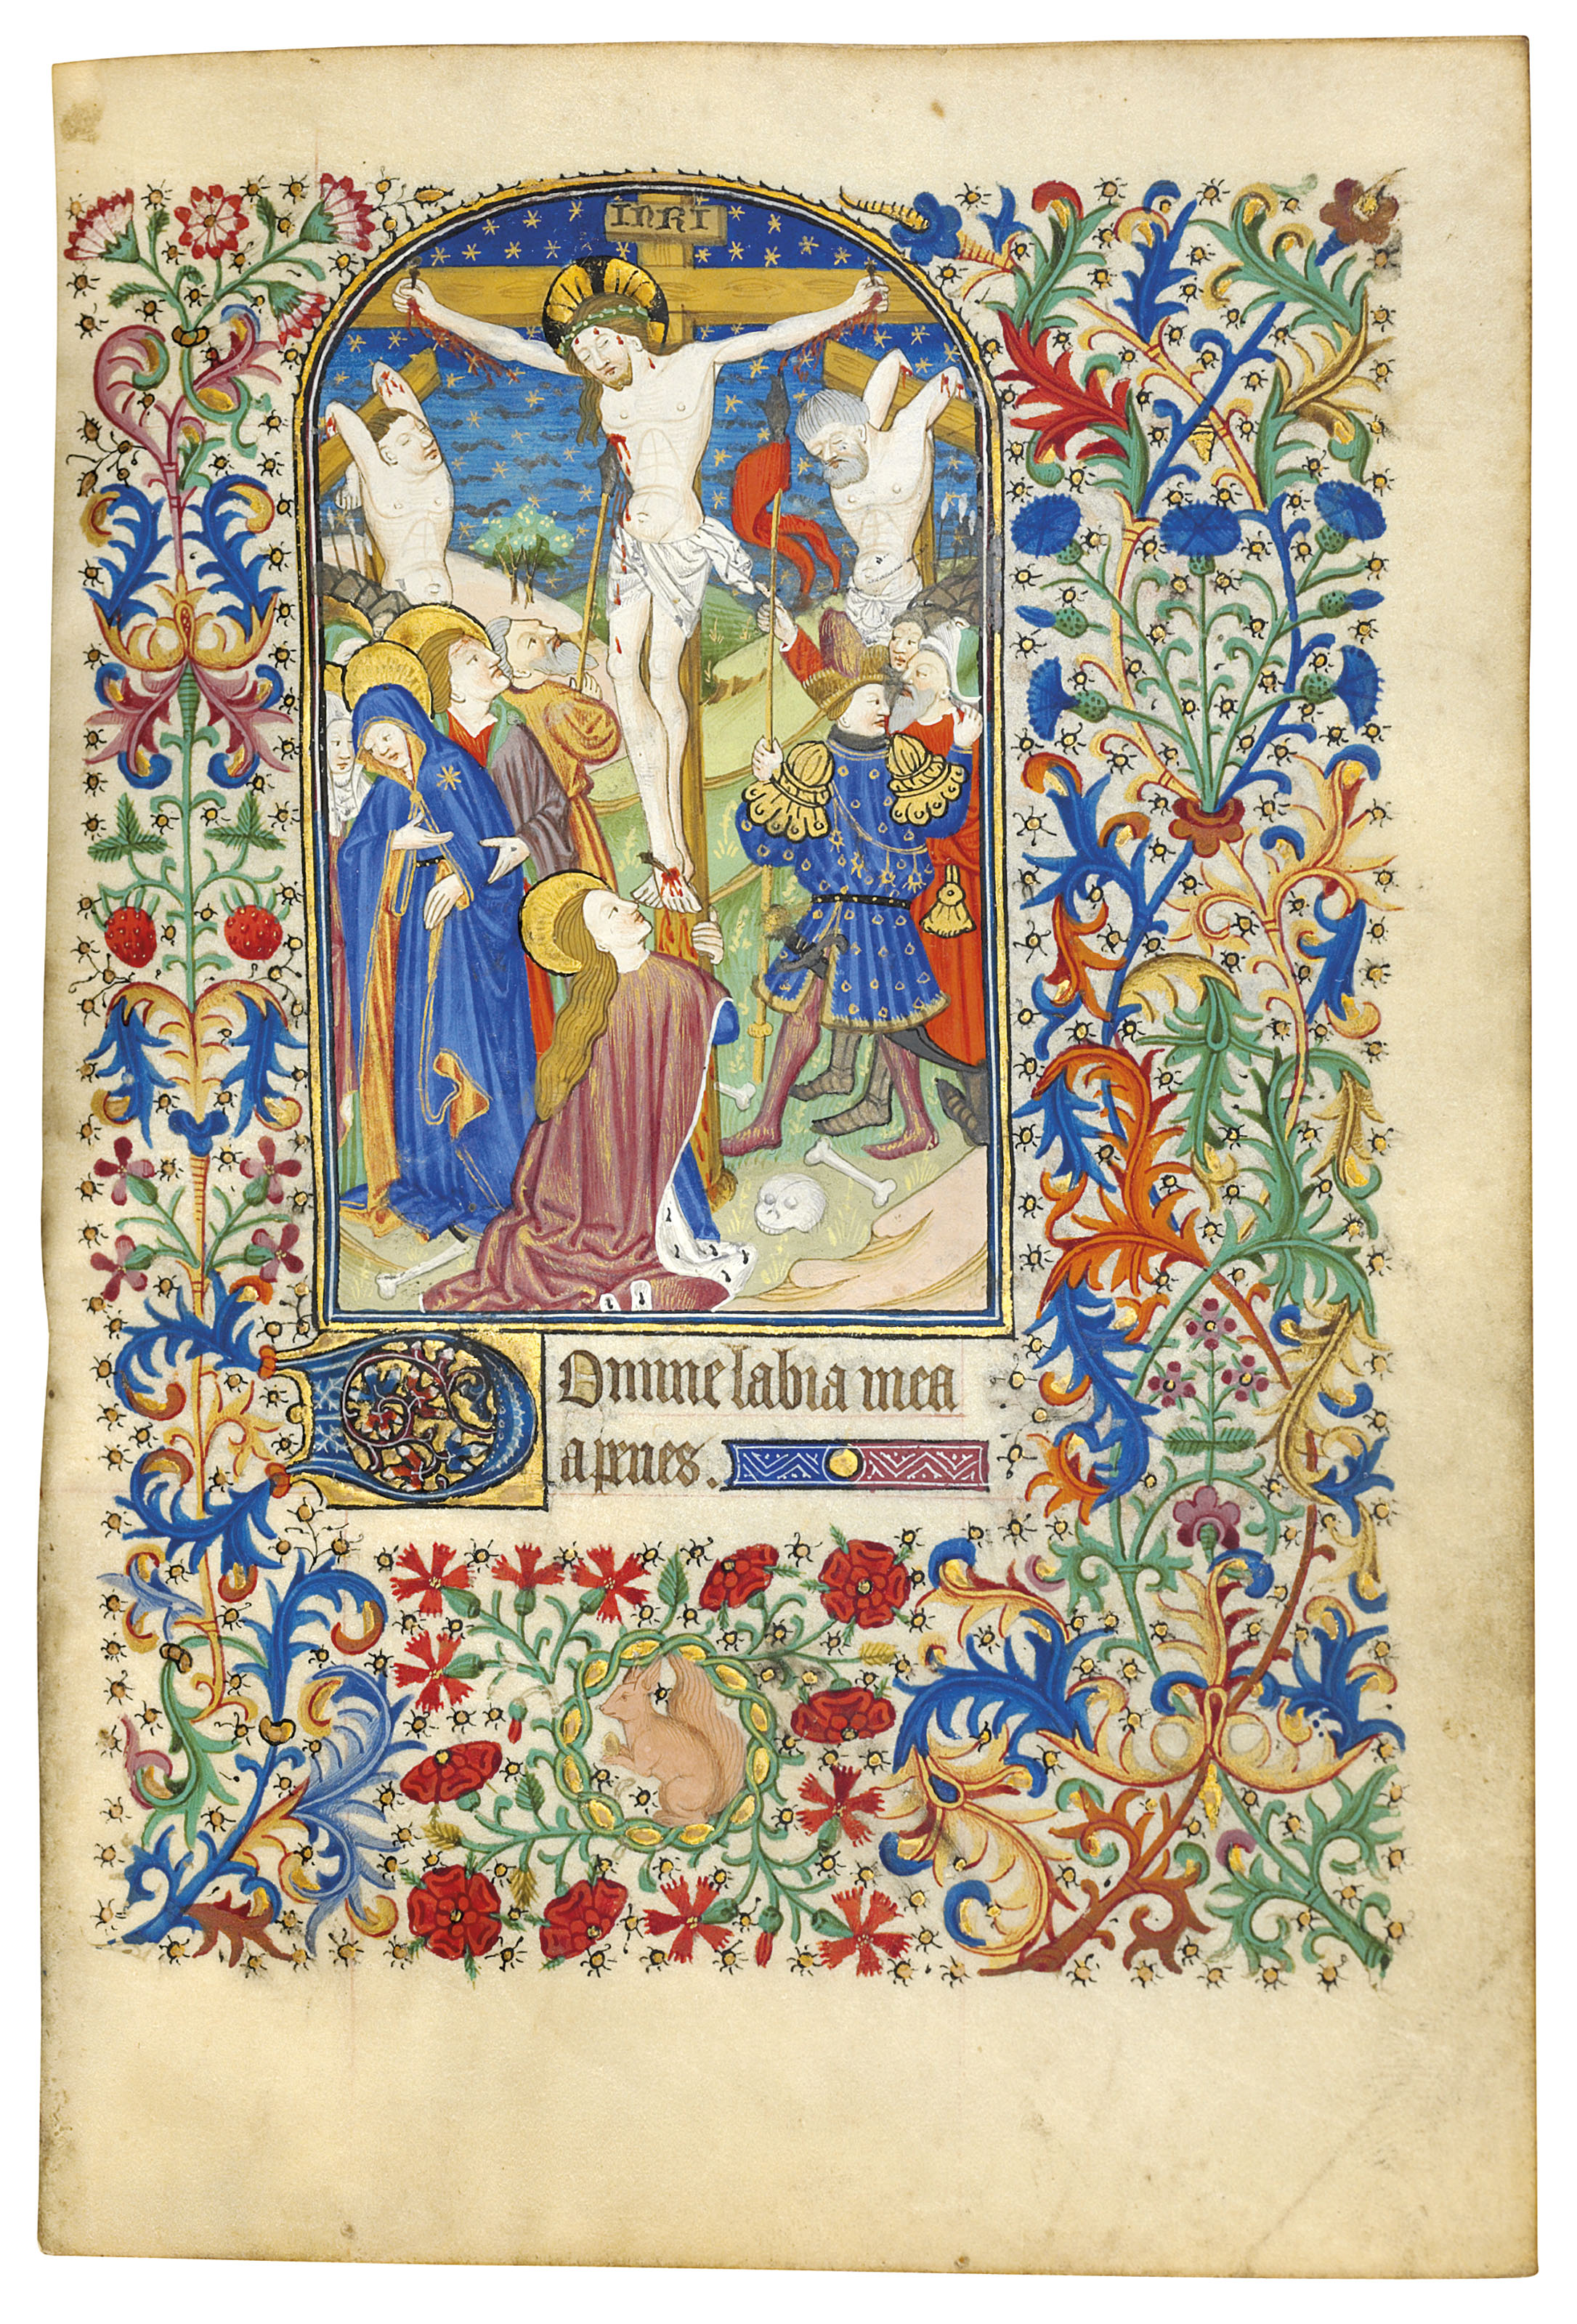 INRI
DOmine labia mea
aperies.